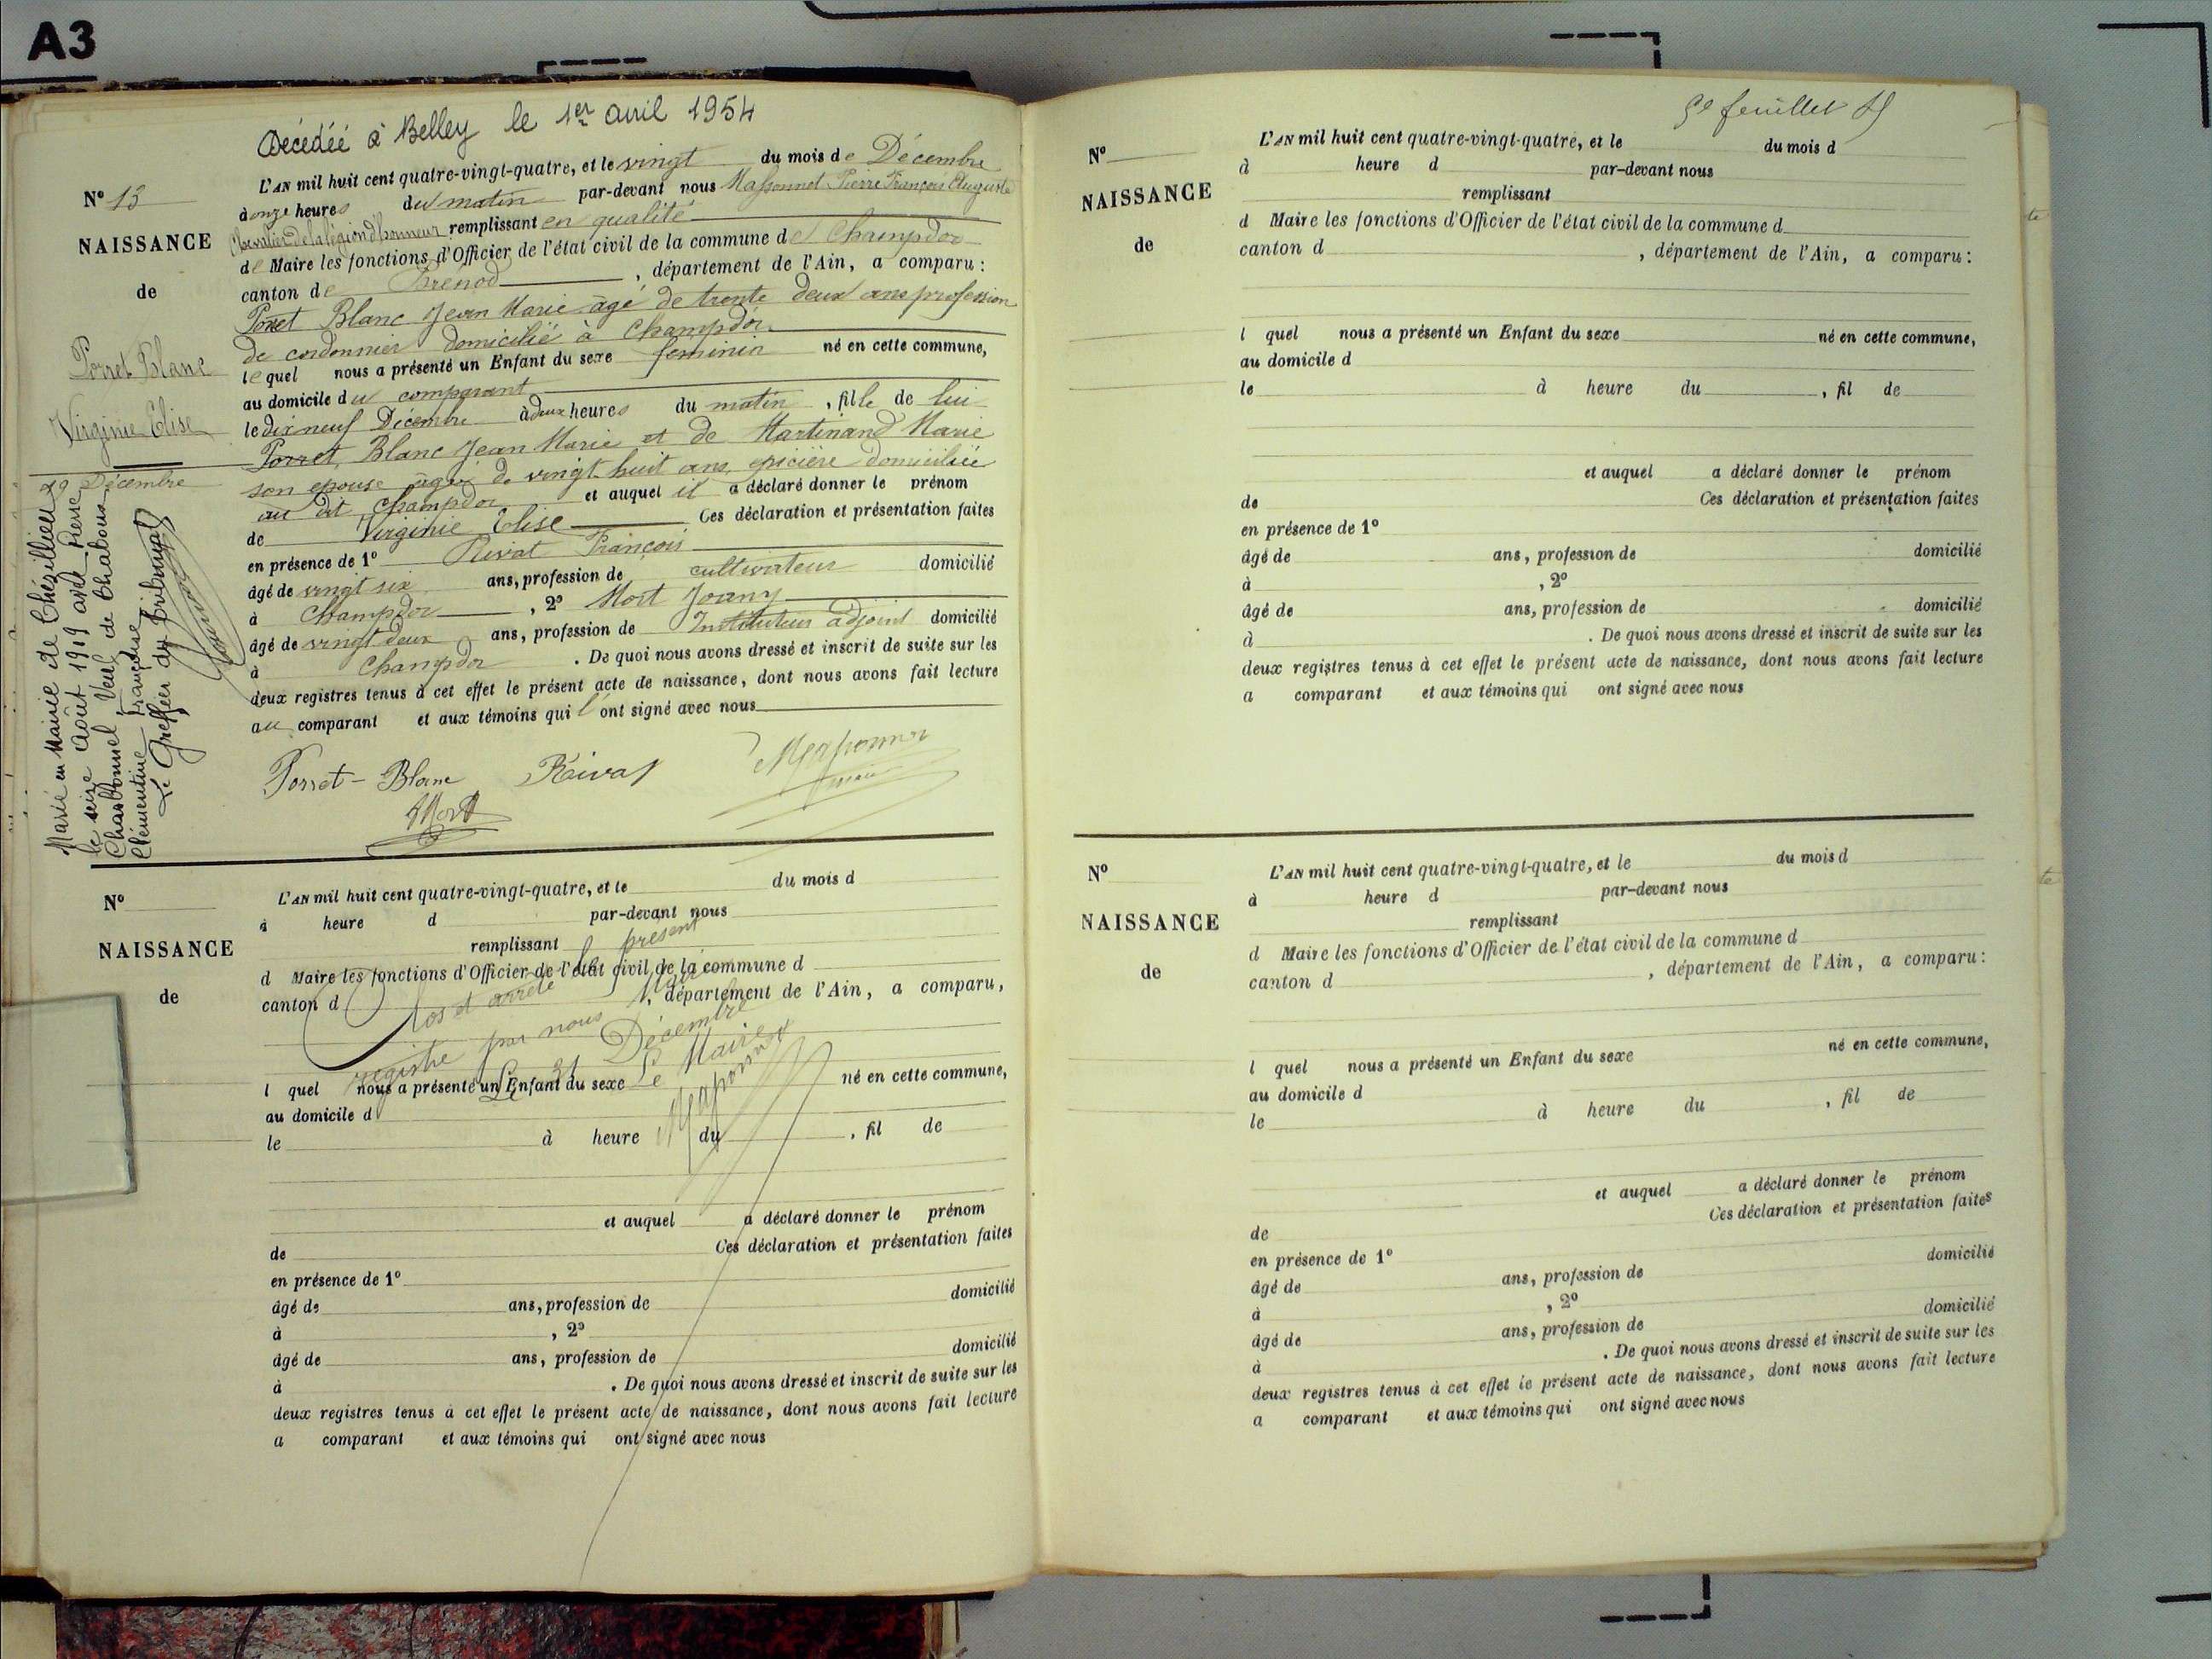 A3
Décédée à Belley le 1er avril 1954
L'AN mil huit cent quatre-vingt-quatre, et le vingt du mois de Décembre
à onze heures du matin par-devant nous Massonnet Pierre François Auguste
Chevalier de la légion d'honneur remplissant en qualité
de Maire les fonctions d'Officier de l'état civil de la commune de Champdor
canton de Brénod, département de l'Ain, a comparu :
Porret Blanc Jean Marie âgé de trente deux ans profession
de cordonnier domicilié à Champdor.
lequel nous a présenté un Enfant du sexe feminin né en cette commune,
au domicile du comparant
le dix neuf Décembre à deux heures du matin, fille de lui
Porret Blanc Jean Marie et de Martinand Marie
son epouse âgée de vingt huit ans, epicière domiciliée
au dit Champdor et auquel il a déclaré donner le prénom
de Virginie Elise Ces déclaration et présentation faites
en présence de 1° Rivat François
âgé de vingt six ans, profession de cultivateur domicilié
à Champdor, 2° Mort Joany
âgé de vingt deux ans, profession de Instituteur adjoint domicilié
à Champdor. De quoi nous avons dressé et inscrit de suite sur les
deux registres tenus à cet effet le présent acte de naissance, dont nous avons fait lecture
au comparant et aux témoins qui l'ont signé avec nous
Porret-Blanc Rivat Massonnet
maire
Mort
N° 13
NAISSANCE
de
Porret Blanc
Virginie Elise
19 Décembre
Marié en Mairie de Chézillieu
le seize août 1919 avec Pierre
Charbonnel Veuf de Chabou
Clémentine Françoise
Le Greffier du tribunal
N°
NAISSANCE
de
L'AN mil huit cent quatre-vingt-quatre, et le du mois d
à heure d par-devant nous
remplissant
d Maire les fonctions d'Officier de l'état civil de la commune d
canton d, département de l'Ain, a comparu,
l quel nous a présenté un Enfant du sexe né en cette commune,
au domicile d
le à heure du, fil de
et auquel a déclaré donner le prénom
de Ces déclaration et présentation faites
en présence de 1°
âgé de ans, profession de domicilié
à, 2°
âgé de ans, profession de domicilié
à. De quoi nous avons dressé et inscrit de suite sur les
deux registres tenus à cet effet le présent acte de naissance, dont nous avons fait lecture
a comparant et aux témoins qui ont signé avec nous
Clos et arrêté le présent
registre par nous Maire
Le 31 Décembre
Le Maire
Massonnet
5e feuillet
N°
NAISSANCE
de
L'AN mil huit cent quatre-vingt-quatre, et le du mois d
à heure d par-devant nous
remplissant
d Maire les fonctions d'Officier de l'état civil de la commune d
canton d, département de l'Ain, a comparu :
l quel nous a présenté un Enfant du sexe né en cette commune,
au domicile d
le à heure du, fil de
et auquel a déclaré donner le prénom
de Ces déclaration et présentation faites
en présence de 1°
âgé de ans, profession de domicilié
à, 2°
âgé de ans, profession de domicilié
à. De quoi nous avons dressé et inscrit de suite sur les
deux registres tenus à cet effet le présent acte de naissance, dont nous avons fait lecture
a comparant et aux témoins qui ont signé avec nous
N°
NAISSANCE
de
L'AN mil huit cent quatre-vingt-quatre, et le du mois d
à heure d par-devant nous
remplissant
d Maire les fonctions d'Officier de l'état civil de la commune d
canton d, département de l'Ain, a comparu :
l quel nous a présenté un Enfant du sexe né en cette commune,
au domicile d
le à heure du, fil de
et auquel a déclaré donner le prénom
de Ces déclaration et présentation faites
en présence de 1°
âgé de ans, profession de domicilié
à, 2°
âgé de ans, profession de domicilié
à. De quoi nous avons dressé et inscrit de suite sur les
deux registres tenus à cet effet le présent acte de naissance, dont nous avons fait lecture
a comparant et aux témoins qui ont signé avec nous